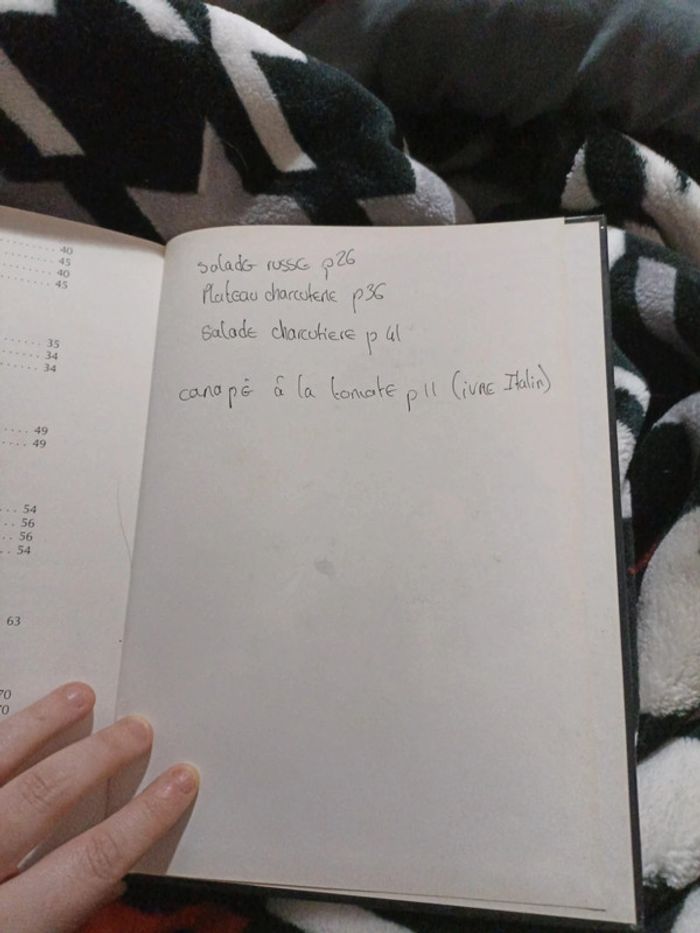 40
45
40
45
35
34
34
49
49
54
56
56
54
63
70
70
salade russe p26
Plateau charcuterie p36
Salade charcutiere p 41
canapé à la tomate p11 (ivre Italin)